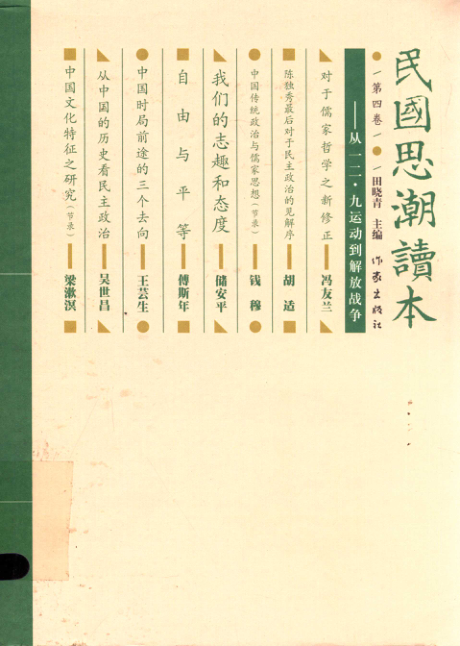 民國思潮讀本
（第四卷）
田晓青 主编 作家出版社
——从一二·九运动到解放战争
对于儒家哲学之新修正 冯友兰
陈独秀最后对于民主政治的见解序 胡适
中国传统政治与儒家思想（节录） 钱穆
我们的志趣和态度 储安平
自由与平等 傅斯年
中国时局前途的三个去向 王芸生
从中国的历史看民主政治 吴世昌
中国文化特征之研究（节录） 梁漱溟